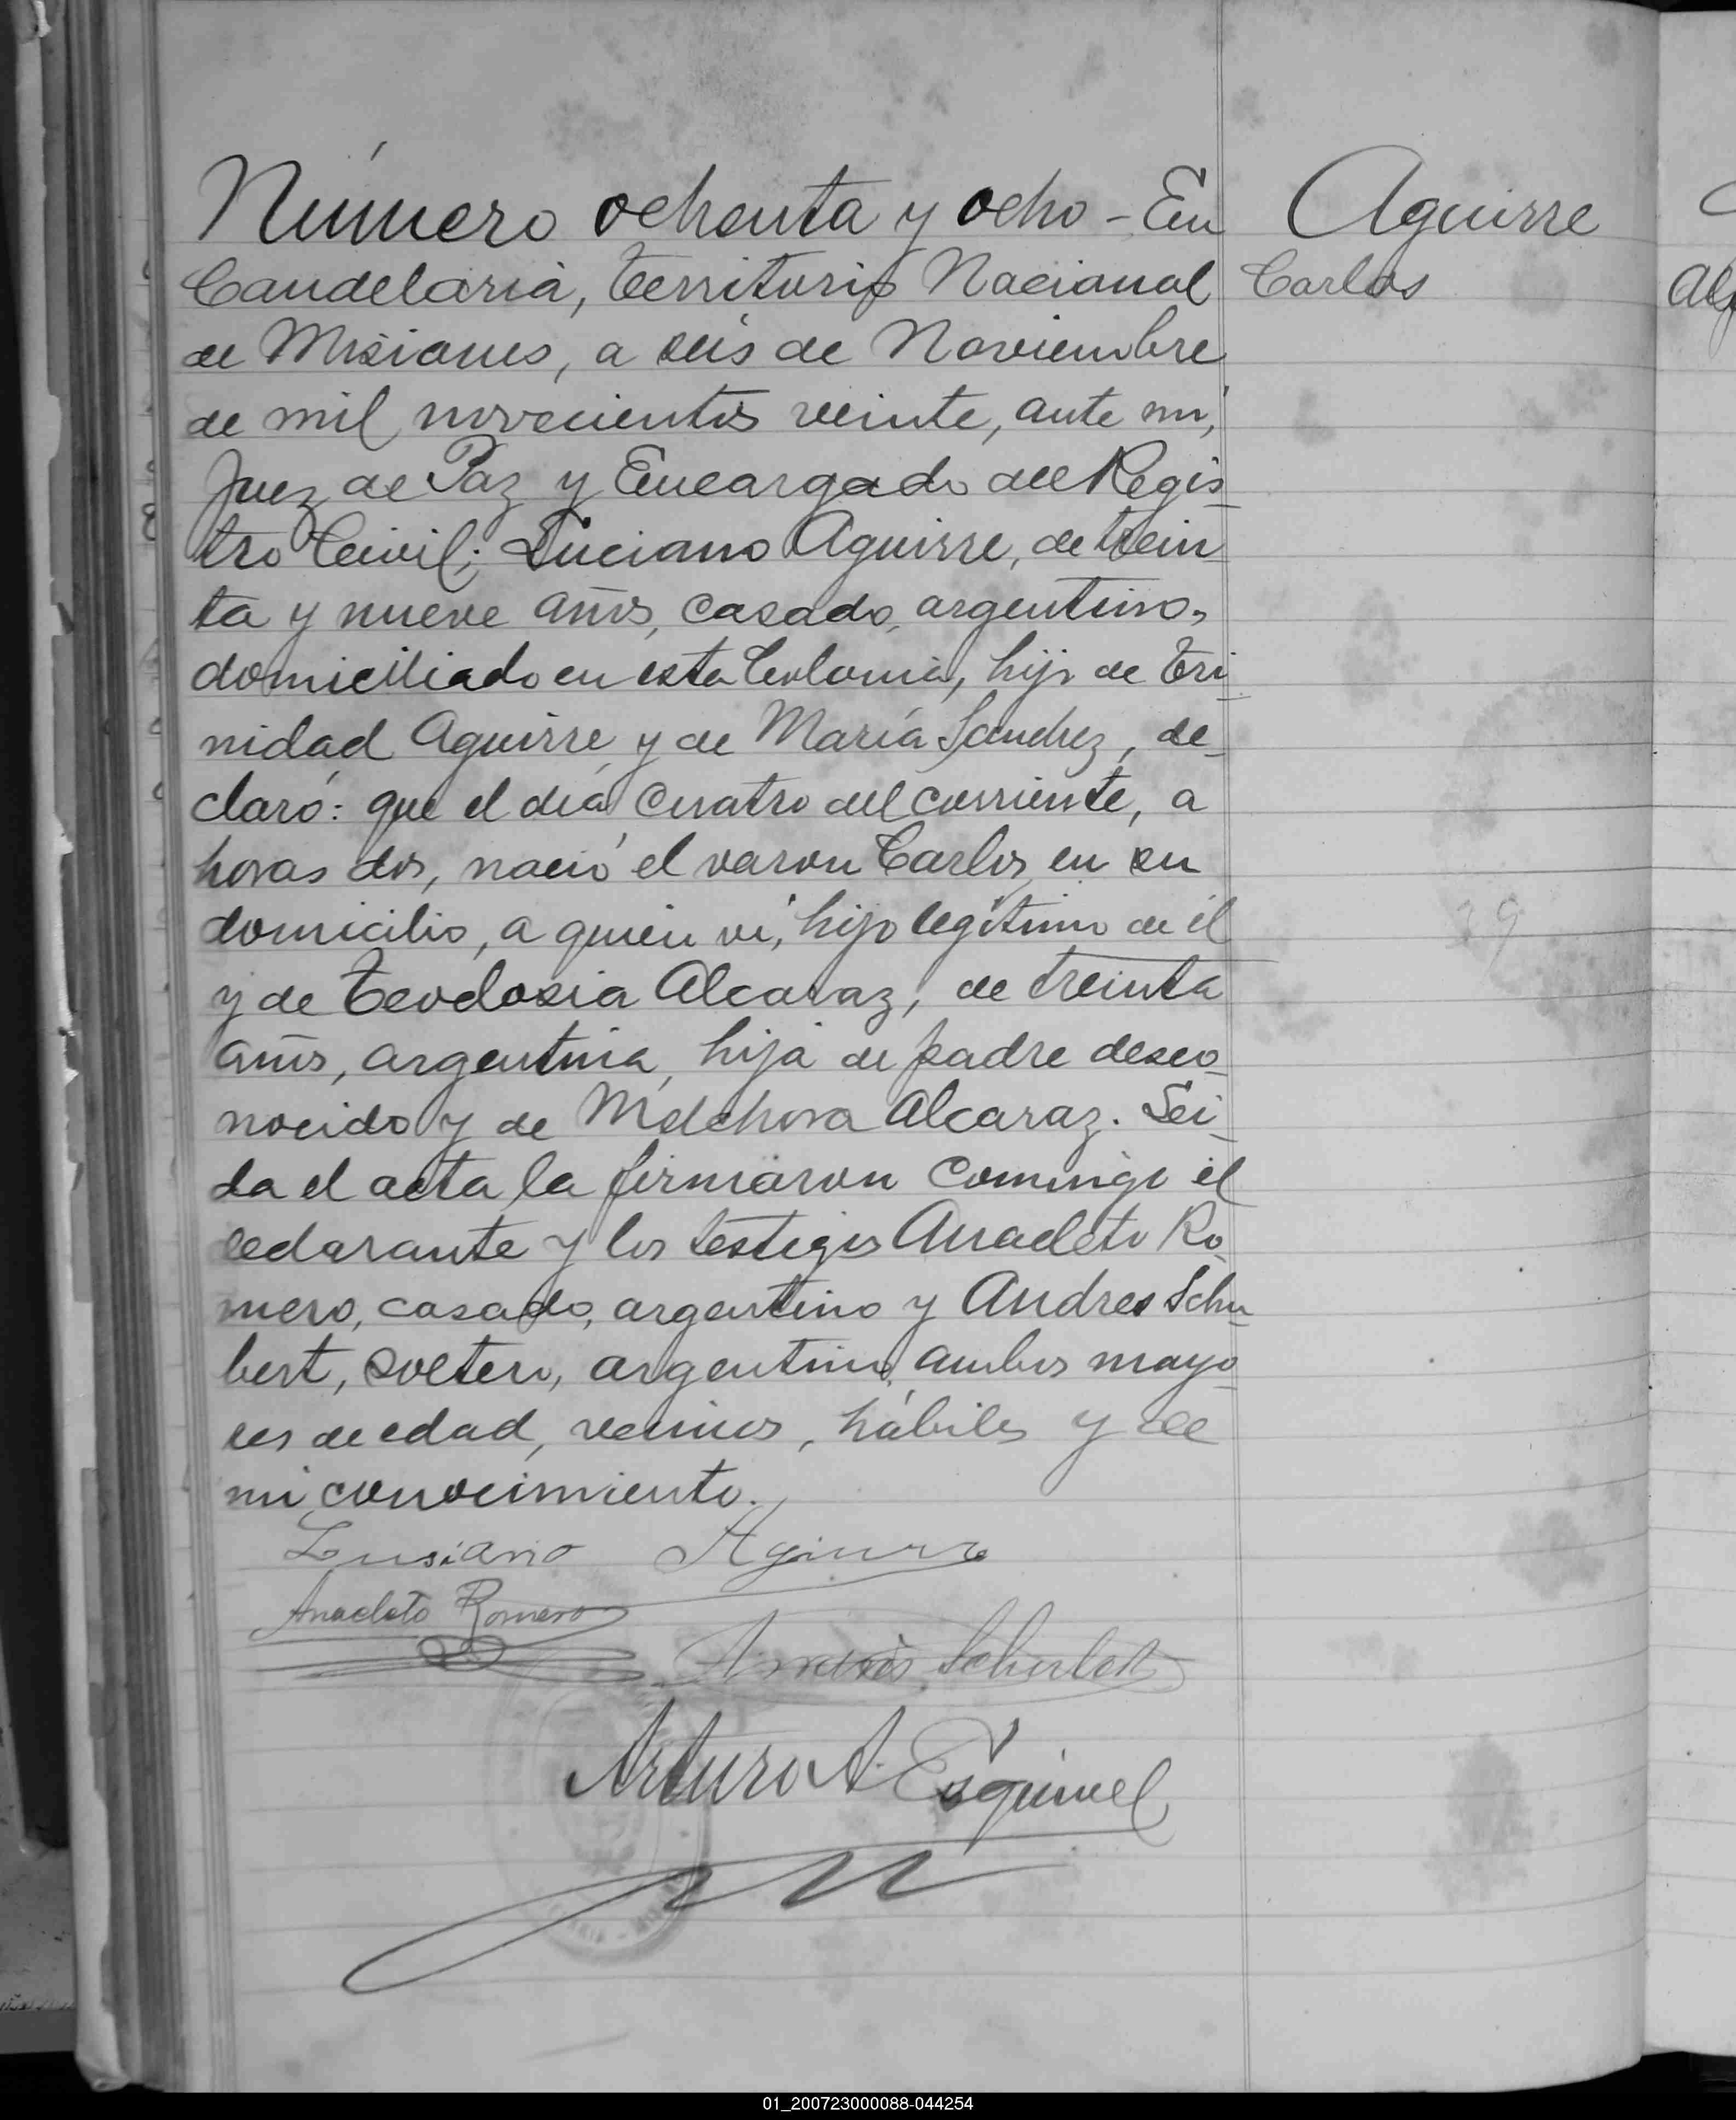 Número ochenta y ocho - En
Candelaria, territorio Nacional
de Misiones, a seis de Noviembre
de mil novecientos veinte, ante mi,
Juez de Paz y Encargado del Regis
tro Civil; Luciano Aguirre, de trein
ta y nueve años, casado, argentino,
domiciliado en esta Colonia, hijo de Tri
nidad Aguirre y de María Sanchez, de-
claró: que el día cuatro del corriente, a
horas dos, nació el varon Carlos, en su
domicilio, a quien vi, hijo legítimo de él
y de Teodosia Alcaraz, de treinta
años, argentina, hija de padre desco
nocido y de Melchora Alcaraz. Lei
da el acta la firmaron conmigo el
declarante y los testigos Anacleto Ro
mero, casado, argentino y Andres Schu
bert, soltero, argentino, ambos mayo
res de edad, vecinos, hábiles y de
mi conocimiento.
Lusiano Aguirre
Anacleto Romero
Andrés Schubert
Arturo A. Esquivel
Aguirre
Carlos
39
01_200723000088-044254